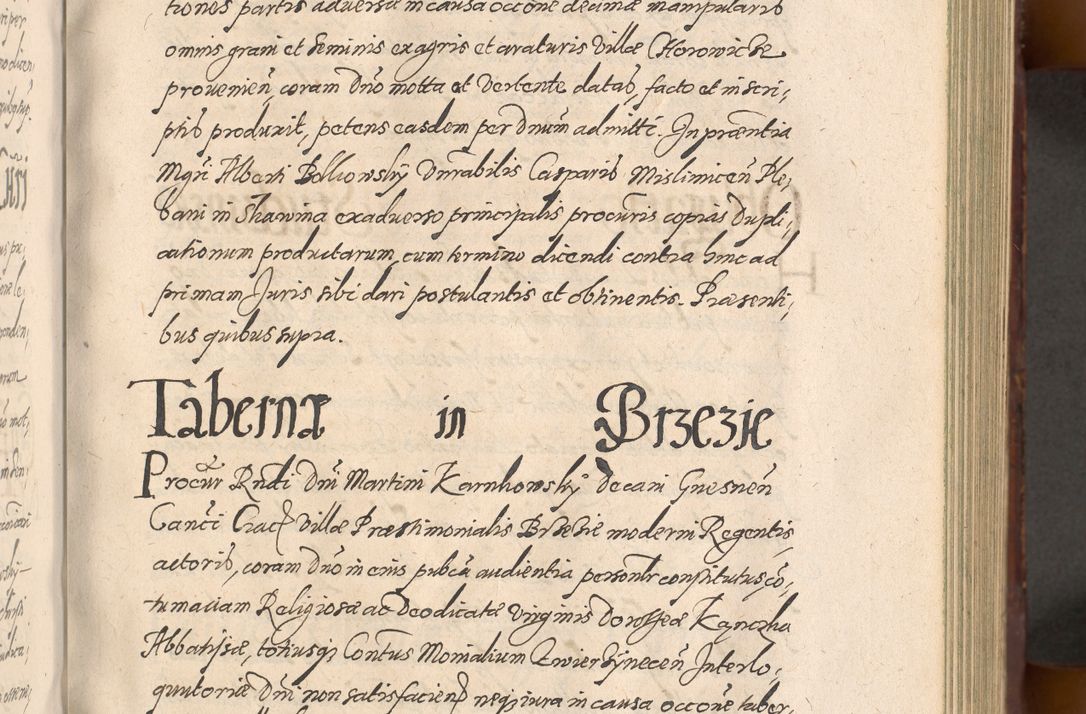 tiones partis adversæ in causa occõne decimæ manipularis
omnis grani et seminis ex agris et araturis villæ Chorowicze
provenieñ, coram Dño motta et vertente datas, facto et in scri,
ptis produxit, petens easdem per Dnum admitti. In præntia
Mgri Alberti Bolkowsky Vnrabilis Casparis Mislimiceñ Ple,
bani in Skawina ex adverso principalis procuris copias dupli,
cationum productarum cum termino dicendi contra hinc ad
primam Juris sibi dari postulantis et obtinentis. Præsenti,
bus quibus supra.
Taberna in Brzezie
Procur Rndi Dni Martini Karnkowsky decani Gnesneñ
Canci Crac villæ Præstimonialis Brzezie moderni Regentis
actoris, coram Dño in eius pubca audientia personlr constitutus, cõ,
tumaciam Religiosæ ac Deodicatæ virginis Dorotheæ Kąnczka
Abbatissæ, totiusq Contus Monialium Zwierzyneceñ Interlo,
quutoriæ Dni non satisfacien neq iura in causa occõne taber,